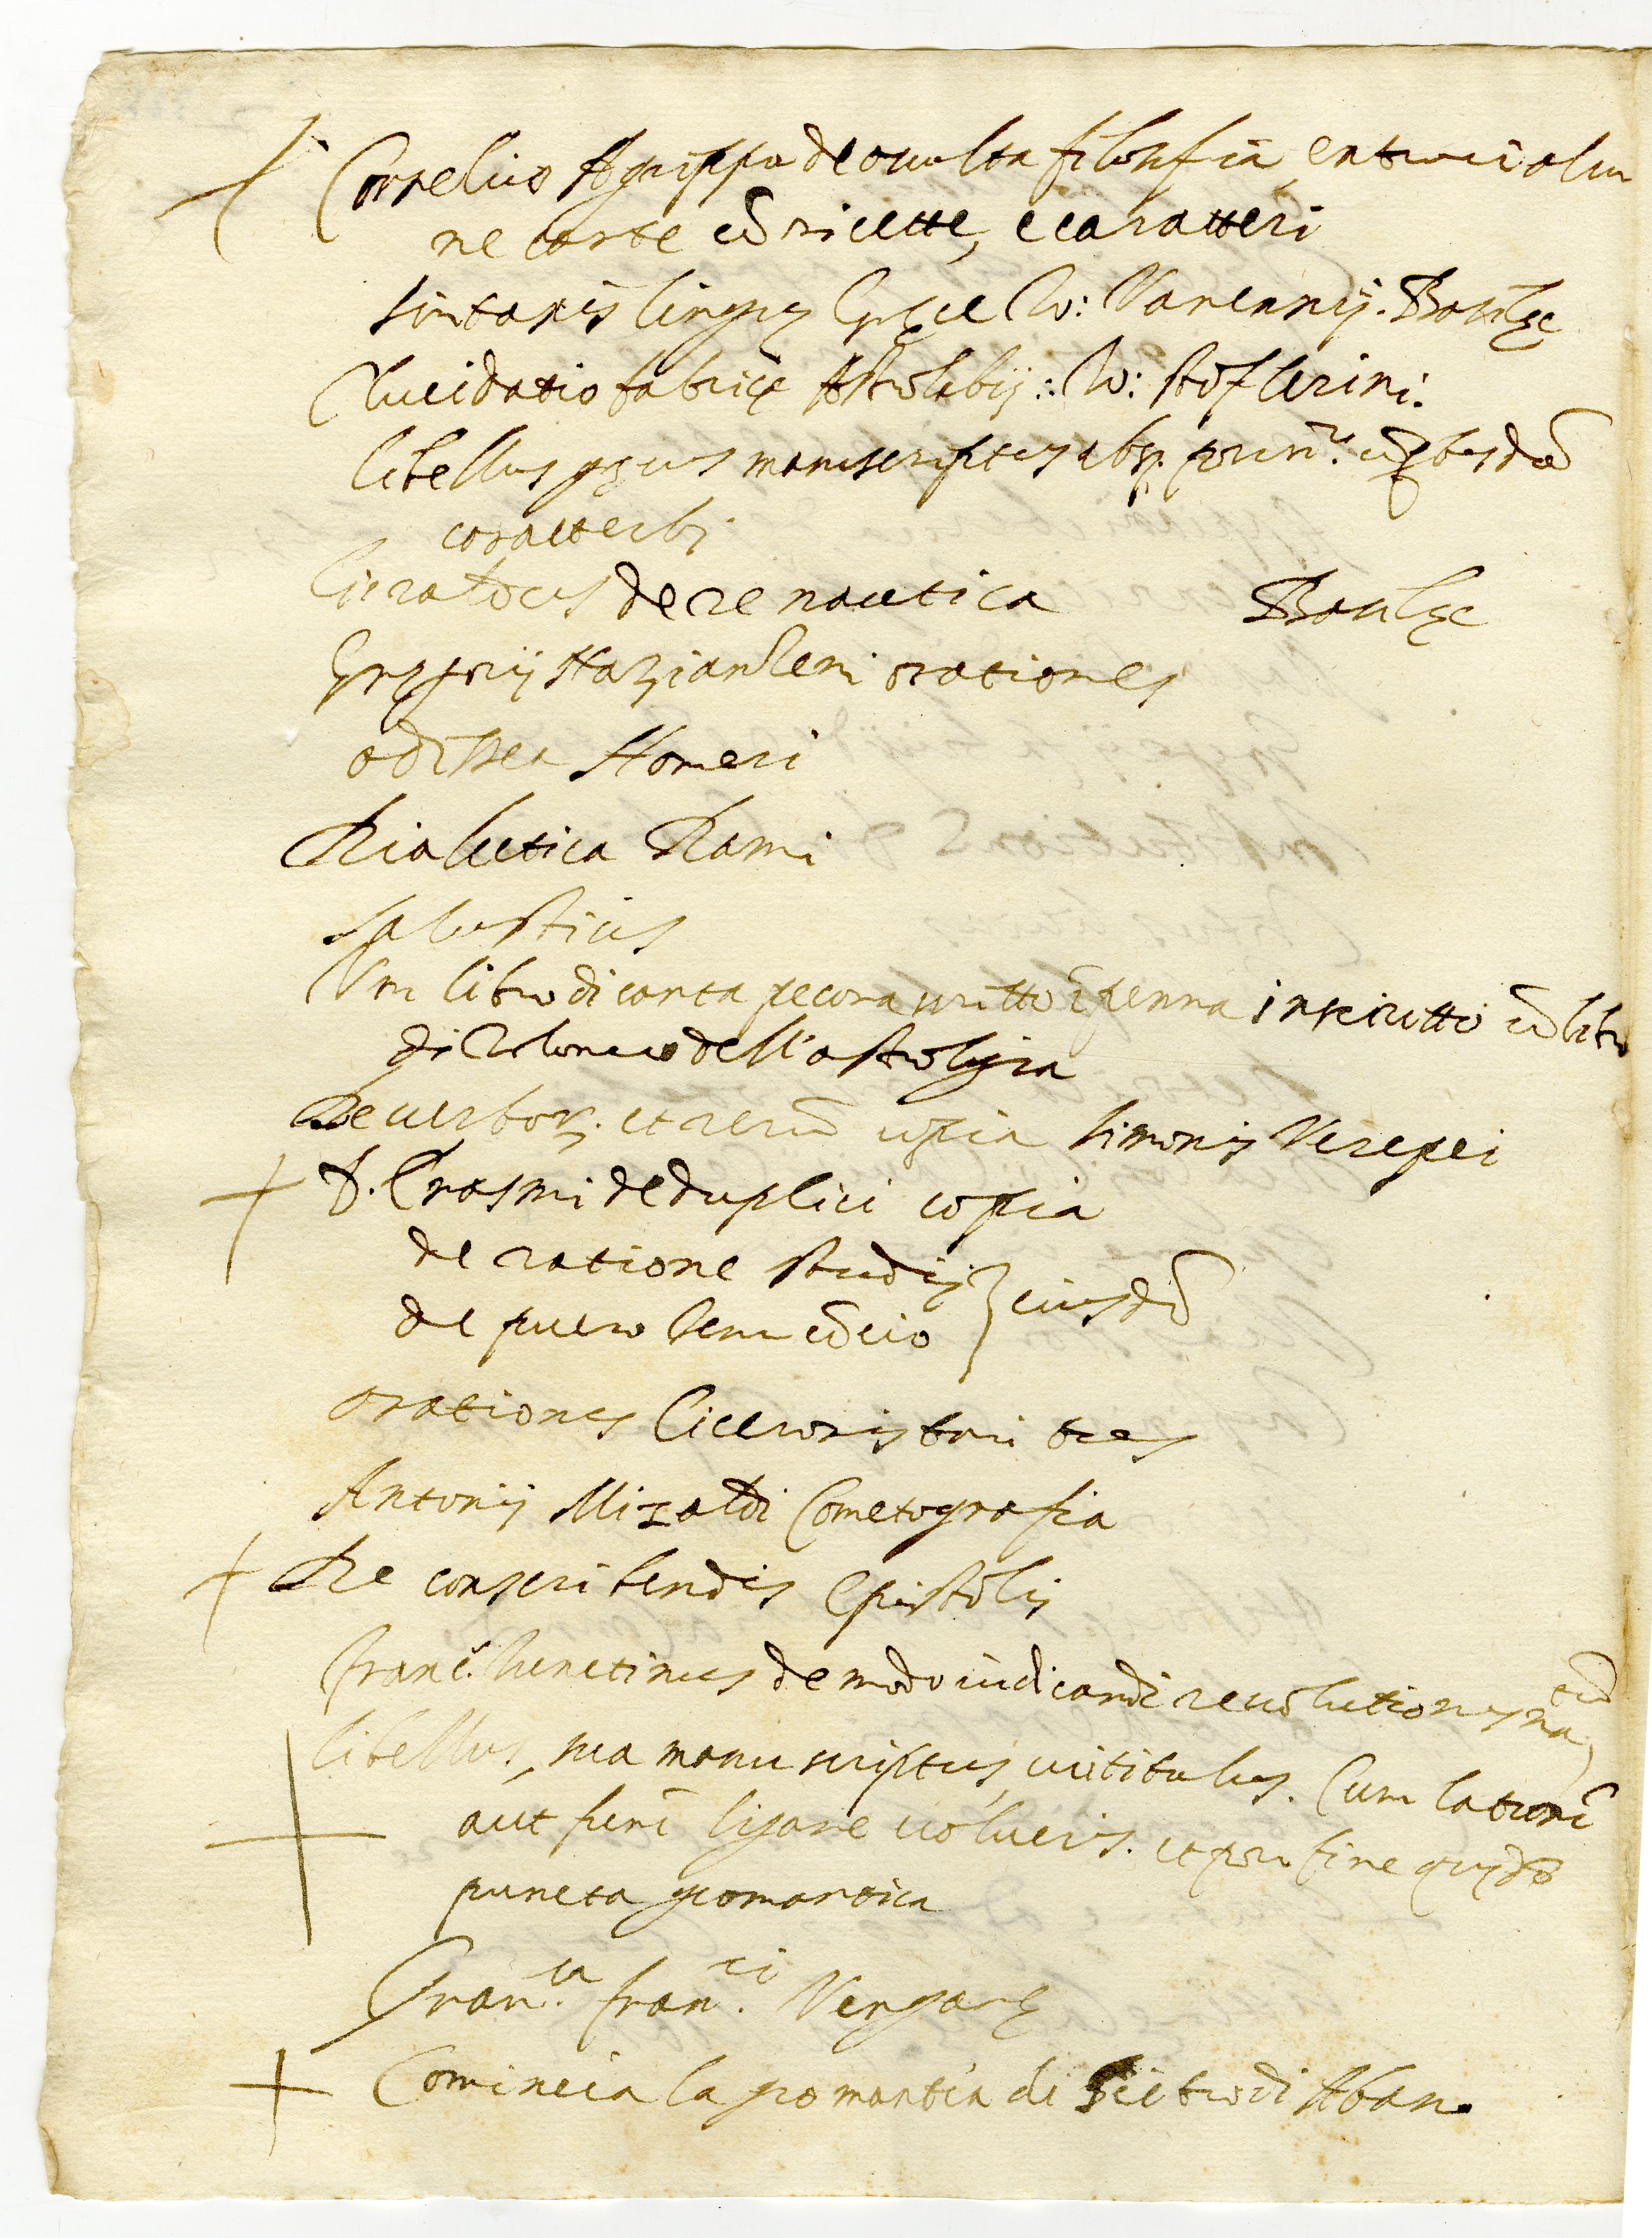 Cornelius Agrippa de oculta filosofia, entroui alcu
ne carte cō ricette, e caratteri
Sintaxis linguę Gręce Io: Varennij. Basileę
Elucidatio fabricę Astrolabij: Io: Stoflerini.
libellus manuscriptus absq. prin.º cū qbusdā
caratterib;
De re nautica Basileę
Gregorij Nazianzeni orationes
odissea Homeri
Dialectica Rami
Salustius
Un libro di carta pecora scritto ī penna inscritto cō libro
di Tolomeo dell'astrologia
De verbor. et rerū copia Simonis Verepei
D. Erasmi de duplici copia
de ratione studij } eiusdē
de puero Iesu cōcio
orationes Ciceronis tomi tres
Antonij Mizaldi Cometografia
De conscribendis Epistolis
Franc. Iunctinus de modo iudicandi reuolutiones
libellus, sua manu scriptus, cui titulus. Cum latronē
aut furē ligare uolueris. et pro fine quędā
puncta geomantica
Gran.ca fran.ci Vergarę
Comincia la geomantia di Pietro di Abano